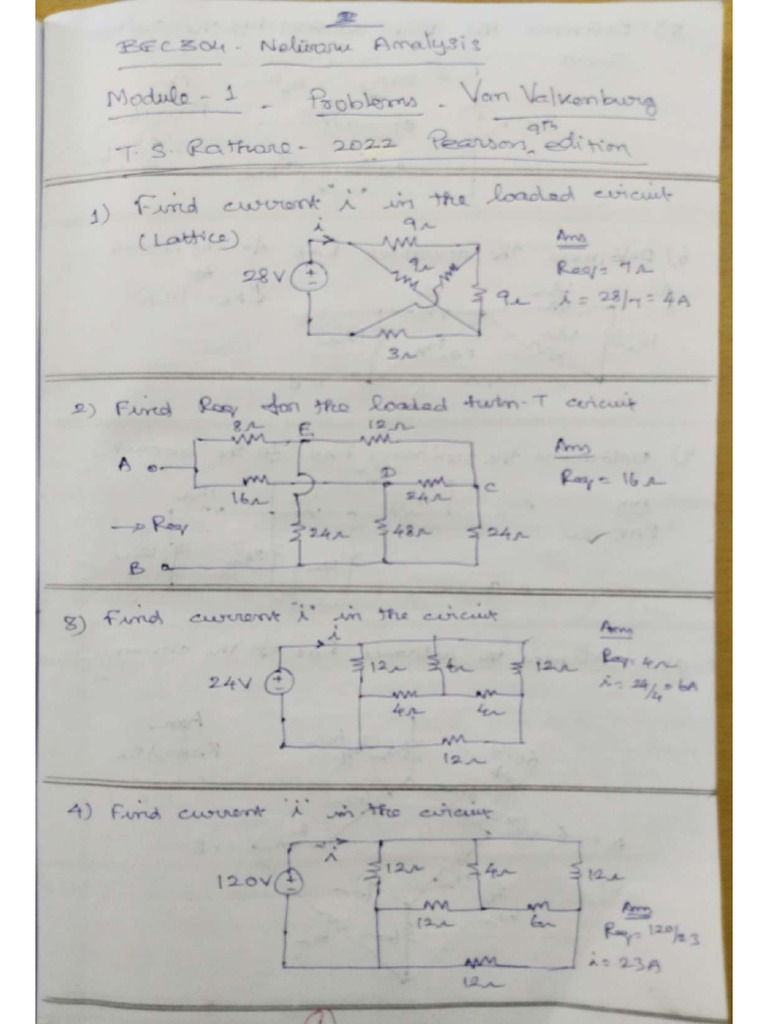 BEC304. Network Analysis
Module - 1 . Problems . Van Valkenburg
T. S. Rathore - 2022 Pearson 9th edition
1) Find current "i" in the loaded circuit
(Lattice)
i
9Ω
28V
9Ω
9Ω
3Ω
Ans
Req = 7Ω
i = 28/7 = 4A
2) Find Req for the loaded twin-T circuit
8Ω E 12Ω
A
16Ω D 24Ω C
→ Req
24Ω 48Ω 24Ω
B
Ans
Req = 16Ω
3) Find current "i" in the circuit
i
24V
12Ω 4Ω 12Ω
4Ω 4Ω
12Ω
Ans
Req = 4Ω
i = 24/4 = 6A
4) Find current "i" in the circuit
i
120V
12Ω 4Ω 12Ω
12Ω 6Ω
12Ω
Ans
Req = 120/23
i = 23A